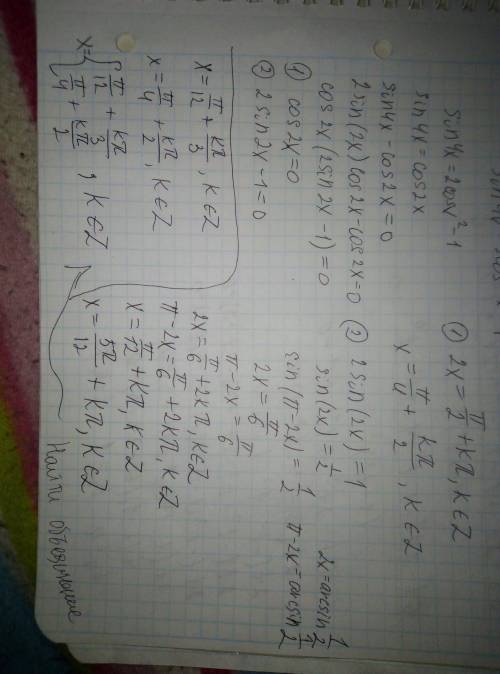 sin4x=2cosx²-1
sin4x=cos2x
sin4x-cos2x=0
2sin(2x)cos2x-cos2x=0
cos2x(2sin2x-1)=0
① cos2x=0
② 2sin2x-1=0
① 2x=π/2+kπ, k∈Z
x=π/4+kπ/2, k∈Z
② 2sin(2x)=1
sin(2x)=1/2
sin(π-2x)=1/2
2x=arcsin 1/2
π-2x=arcsin 1/2
2x=π/6
π-2x=π/6
2x=π/6+2kπ, k∈Z
π-2x=π/6+2kπ, k∈Z
x=π/12+kπ, k∈Z
x=5π/12+kπ, k∈Z
Найти объединение
x=π/12+kπ/3, k∈Z
x=π/4+kπ/2, k∈Z
x={π/12+kπ/3
π/4+kπ/2, k∈Z